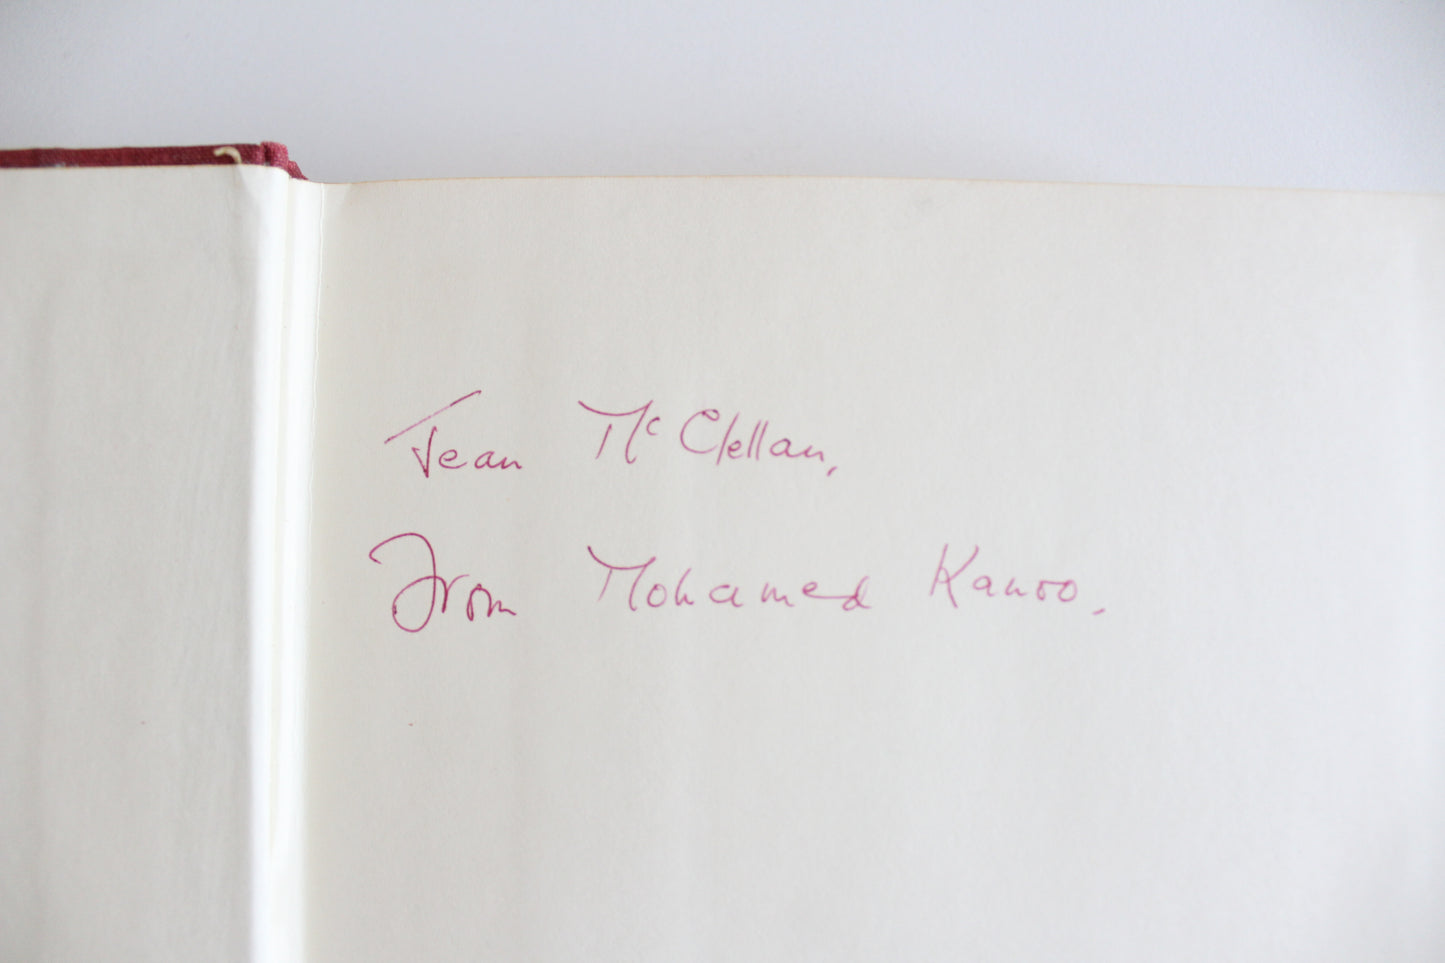 Jean McClellan,
From Mohamed Kanoo.